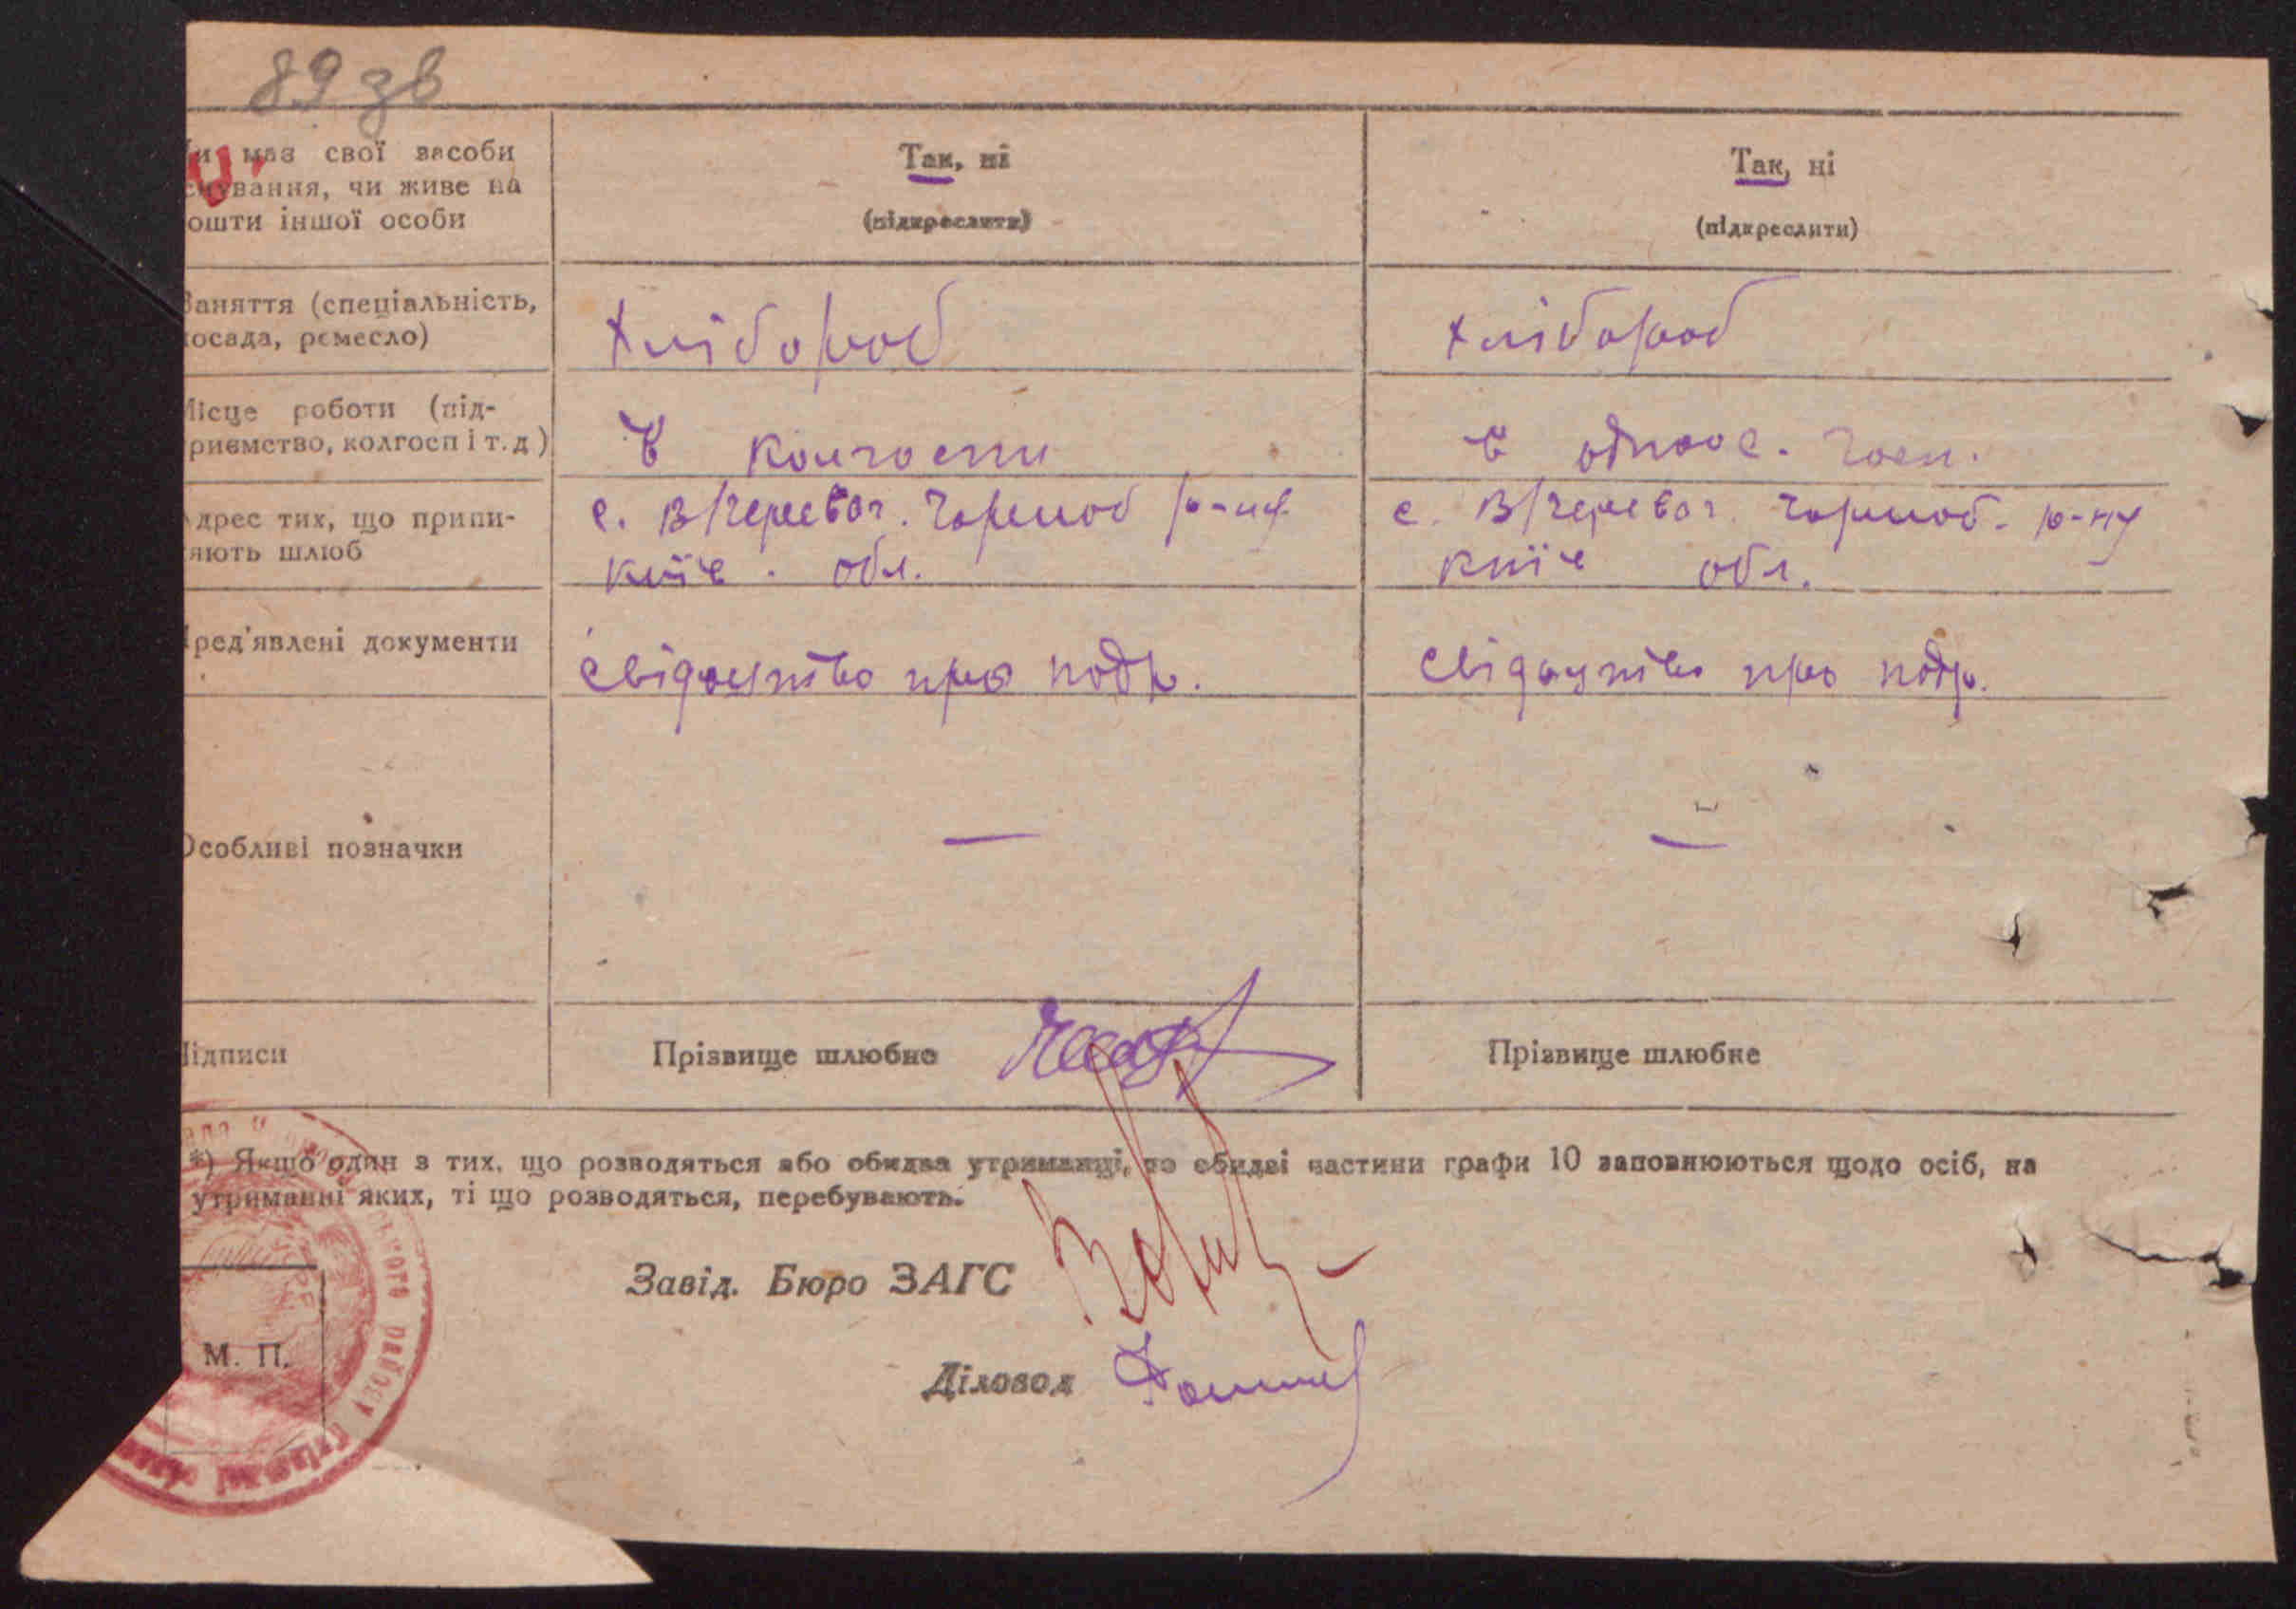 89 зв
и має свої засоби
снування, чи живе на
ошти іншої особи
Так, ні
(підкреслити)
Так, ні
(підкреслити)
Заняття (спеціальність,
посада, ремесло)
Хлібороб
Хлібороб
Місце роботи (під-
приємство, колгосп і т. д)
В колгоспи
В одноос. госп.
Адрес тих, що припи-
няють шлюб
с. В/Череват. Чорноб р-ну
Київ. обл.
с. В/Череват. Чорноб. р-ну
Київ обл.
Пред'явлені документи
Свідоцтво про подр.
Свідоцтво про подр.
Особливі позначки
—
—
Підписи
Прізвище шлюбне
Прізвище шлюбне
*) Якщо один з тих, що розводяться або обидва утриманці, то обидві частини графи 10 заповнюються щодо осіб, на
утриманні яких, ті що розводяться, перебувають.
Завід. Бюро ЗАГС
Діловод
М. П.